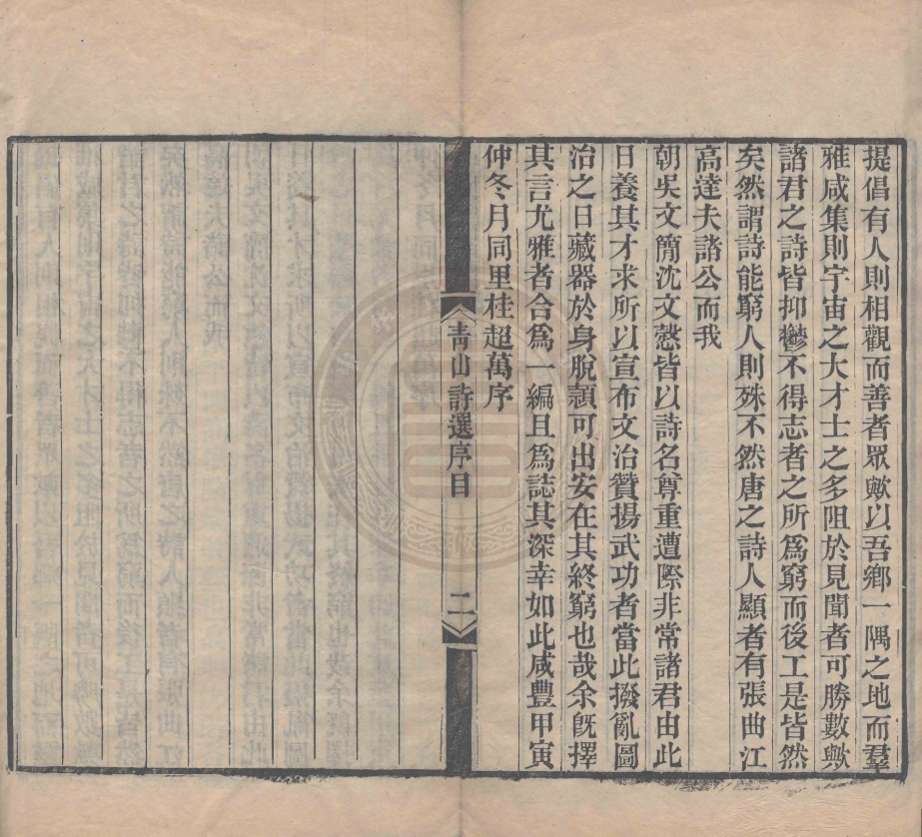 提倡有人則相觀而善者眾歟以吾鄉一隅之地而羣
雅咸集則宇宙之大才士之多阻於見聞者可勝數歟
諸君之詩皆抑鬱不得志者之所爲窮而後工是皆然
矣然謂詩能窮人則殊不然唐之詩人顯者有張曲江
高達夫諸公而我
朝吳文簡沈文慤皆以詩名尊重遭際非常諸君由此
日養其才求所以宣布文治贊揚武功者當此撥亂圖
治之日藏器於身脫頴可出安在其終窮也哉余旣擇
其言尤雅者合爲一編且爲誌其深幸如此咸豐甲寅
仲冬月同里桂超萬序
靑山詩選序目
二